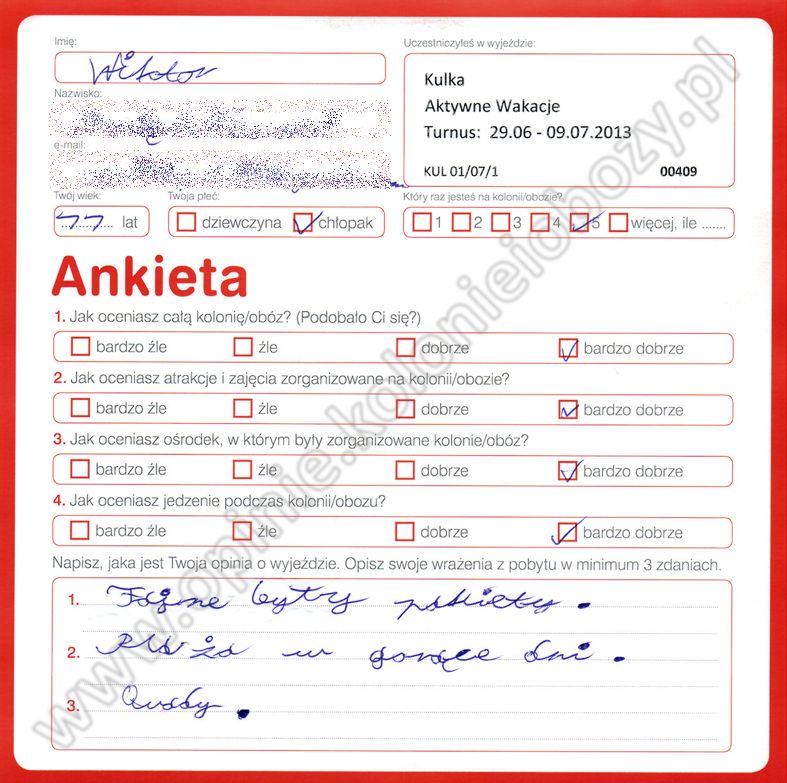 Imię:
Wiktor
Uczestniczyłeś w wyjeździe:
Kulka
Aktywne Wakacje
Turnus: 29.06 - 09.07.2013
KUL 01/07/1 00409
Nazwisko:
e-mail:
Twój wiek:
11 lat
Twoja płeć:
dziewczyna chłopak
Który raz jesteś na kolonii/obozie?
1 2 3 4 5 więcej, ile .......
Ankieta
1. Jak oceniasz całą kolonię/obóz? (Podobało Ci się?)
bardzo źle źle dobrze bardzo dobrze
2. Jak oceniasz atrakcje i zajęcia zorganizowane na kolonii/obozie?
bardzo źle źle dobrze bardzo dobrze
3. Jak oceniasz ośrodek, w którym były zorganizowane kolonie/obóz?
bardzo źle źle dobrze bardzo dobrze
4. Jak oceniasz jedzenie podczas kolonii/obozu?
bardzo źle źle dobrze bardzo dobrze
Napisz, jaka jest Twoja opinia o wyjeździe. Opisz swoje wrażenia z pobytu w minimum 3 zdaniach.
1. Fajne pakiety.
2. Plaża w gorące dni.
3. Quady.
www.opinie.kolonieiobozy.pl